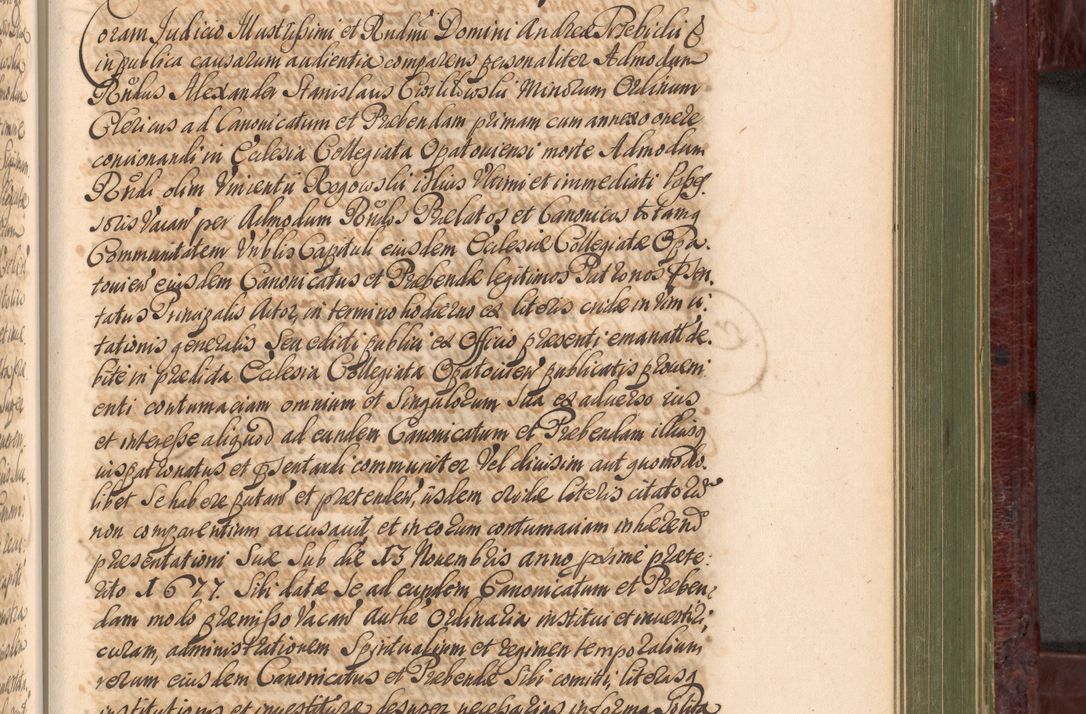 Coram Judicio Illustrissimi et Rndmi Domini Andreæ Trebicki &
in publica causarum audientia comparens personaliter Admodum
Rndus Alexander Stanislaus Minorum Ordinum
Clericus ad Canonicatum et Præbendam primam cum annexo onere
concionandi in Ecclesia Collegiata Opatoviensi morte Admodum
Rndi olim Vincentii Rogowski illius Ultimi et immediati Posses
soris Vacan per Admodum Rndos Prælatos et Canonicos totamq
Communitatem Vnblis Capituli eiusdem Ecclesiæ Collegiatæ Opa.
tovien eiusdem Canonicatus et Præbendæ legitimos Patronos Psen.
tatus Principalis Actor, in termino hodierno ex literis cridæ in rim ci:
tationis generalis Seu edicti publici ex Officio præsenti emanatt de.
bite in prædicta Ecclesia Collegiata Opatovien publicatis proveni
enti contumaciam omnium et Singulorum Sua ex adverso ius
et interesse aliquod ad eundem Canonicatum et Præbendam illiusq
iuspatronatus et psentandi communiter Vel divisim aut quomodo.
libet Se habere putan et prætenden, iisdem cridæ literis citatorum
non comparentium accusavit, et in eorum contumaciam inhærendo
præsentationi Suæ Sub die 13 Novembris anno proxime præte:
rito 1677. Sibi datæ Se ad eundem Canonicatum et Præben:
dam modo præmisso Vacan Authe Ordinaria institui et investiri,
curam, administrationem Spiritualium et regimen temporalium
rerum eiusdem Canonicatus et Præbendæ Sibi comitti, literasq
institutionis et investituræ desuper necessarias in forma Solita